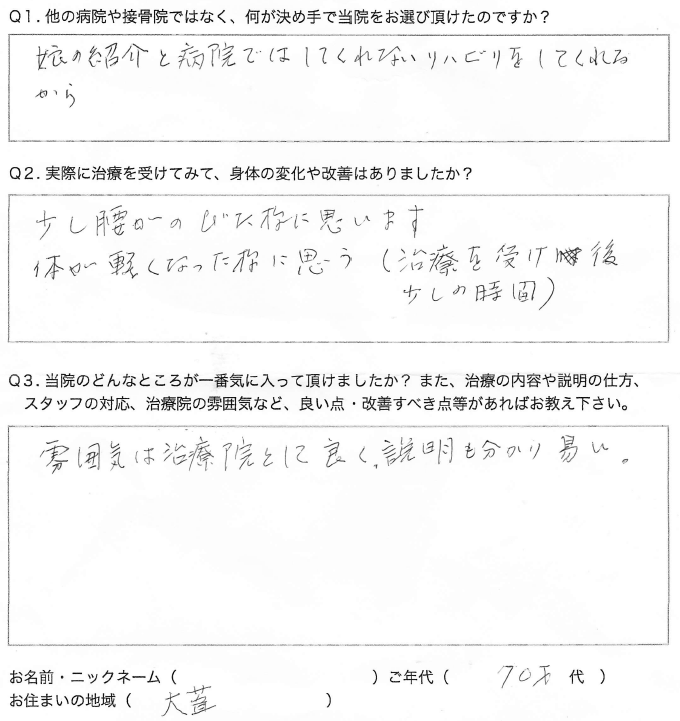 Q1. 他の病院や接骨院ではなく、何が決め手で当院をお選び頂けたのですか？
娘の紹介と病院ではしてくれないリハビリをしてくれる
から
Q2. 実際に治療を受けてみて、身体の変化や改善はありましたか？
少し腰がのびた様に思います
体が軽くなった様に思う（治療を受け後
少しの時間）
Q3. 当院のどんなところが一番気に入って頂けましたか？ また、治療の内容や説明の仕方、
スタッフの対応、治療院の雰囲気など、良い点・改善すべき点等があればお教え下さい。
雰囲気は治療院として良く、説明も分かり易い。
お名前・ニックネーム（ ）ご年代（ 70才 代 ）
お住まいの地域（ 大蓋 ）